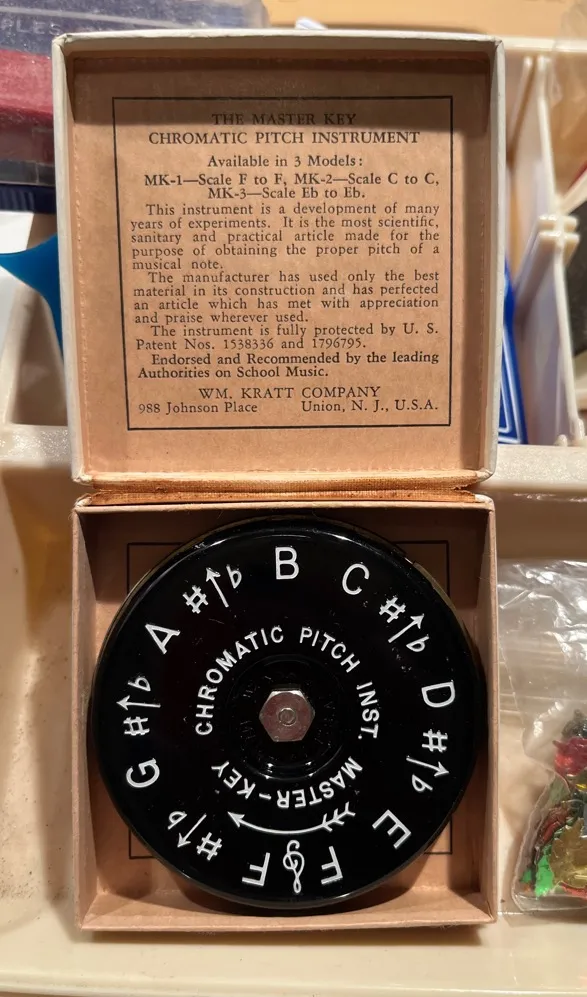 PLES
THE MASTER KEY
CHROMATIC PITCH INSTRUMENT
Available in 3 Models:
MK-1—Scale F to F, MK-2—Scale C to C,
MK-3—Scale Eb to Eb.
This instrument is a development of many
years of experiments. It is the most scientific,
sanitary and practical article made for the
purpose of obtaining the proper pitch of a
musical note.
The manufacturer has used only the best
material in its construction and has perfected
an article which has met with appreciation
and praise wherever used.
The instrument is fully protected by U. S.
Patent Nos. 1538336 and 1796795.
Endorsed and Recommended by the leading
Authorities on School Music.
WM. KRATT COMPANY
988 Johnson Place Union, N. J., U.S.A.
F
#♭
G
#♭
A
#♭
B
C
#♭
D
#♭
E
F
CHROMATIC PITCH INST.
MASTER-KEY